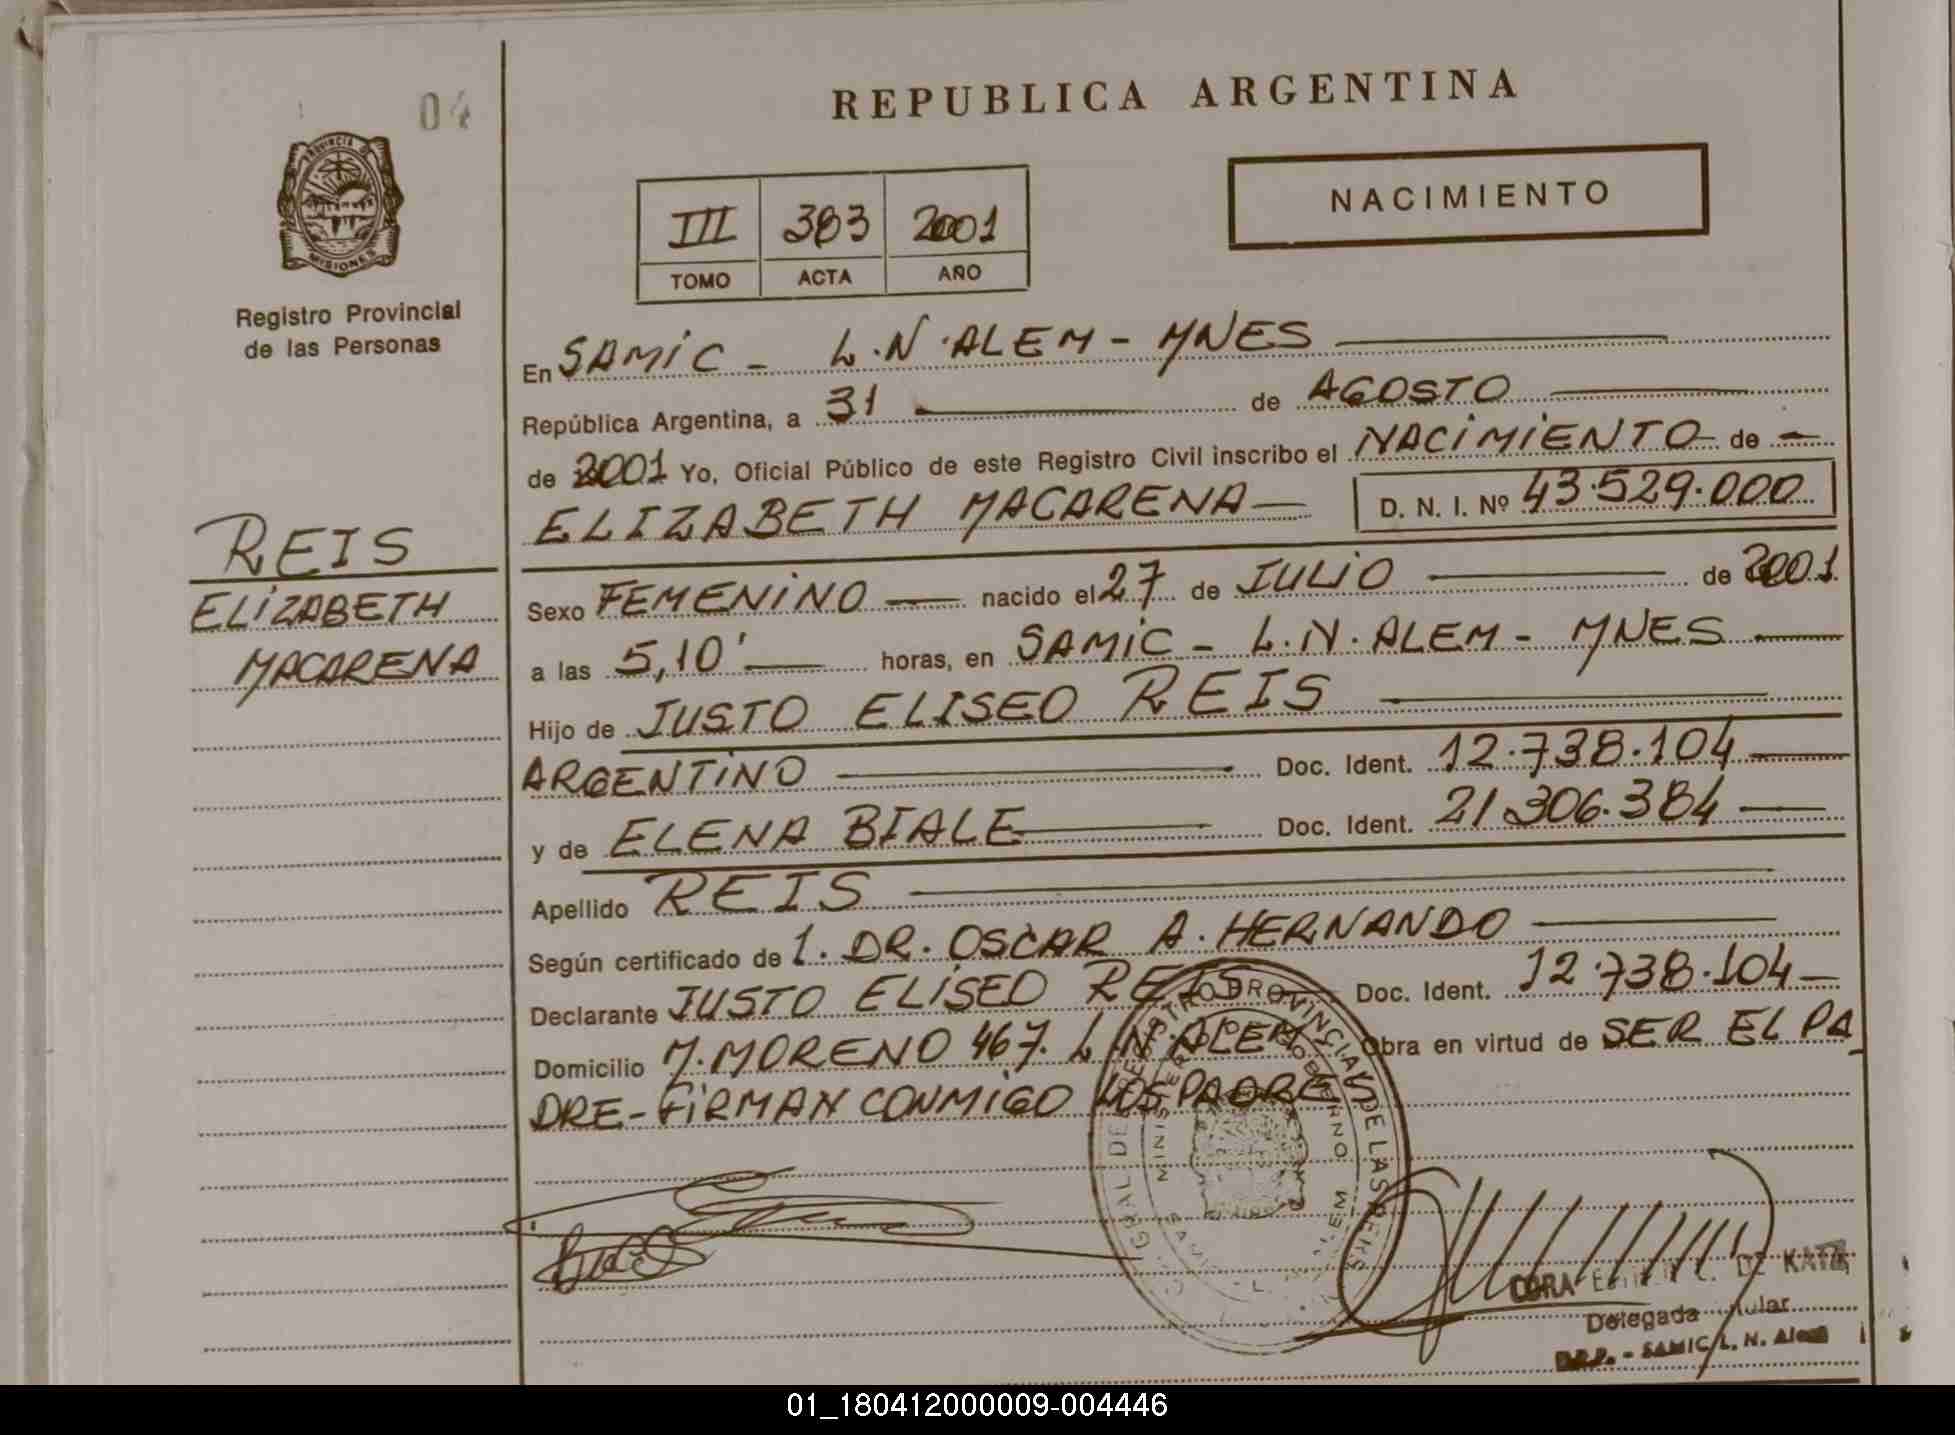 04
REPUBLICA ARGENTINA
PROVINCIA DE
MISIONES
Registro Provincial
de las Personas
III 383 2001
TOMO ACTA AÑO
NACIMIENTO
En SAMIC - L.N. ALEM - MNES
República Argentina, a 31 de AGOSTO
de 2001 Yo, Oficial Público de este Registro Civil inscribo el NACIMIENTO de
ELIZABETH MACARENA D. N. I. Nº 43.529.000
REIS
ELIZABETH
MACARENA
Sexo FEMENINO nacido el 27 de JULIO de 2001
a las 5,10' horas, en SAMIC - L.N. ALEM - MNES
Hijo de JUSTO ELISEO REIS
ARGENTINO Doc. Ident. 12.738.104
y de ELENA BIALE Doc. Ident. 21.306.384
Apellido REIS
Según certificado de 1. DR. OSCAR A. HERNANDO
Declarante JUSTO ELISEO REIS Doc. Ident. 12.738.104
Domicilio M. MORENO 467. L.N. ALEM Obra en virtud de SER EL PA
DRE - FIRMAN CONMIGO LOS PADRES
DE KATZ
Delegada Titular
SAMIC L. N. Alem
01_180412000009-004446